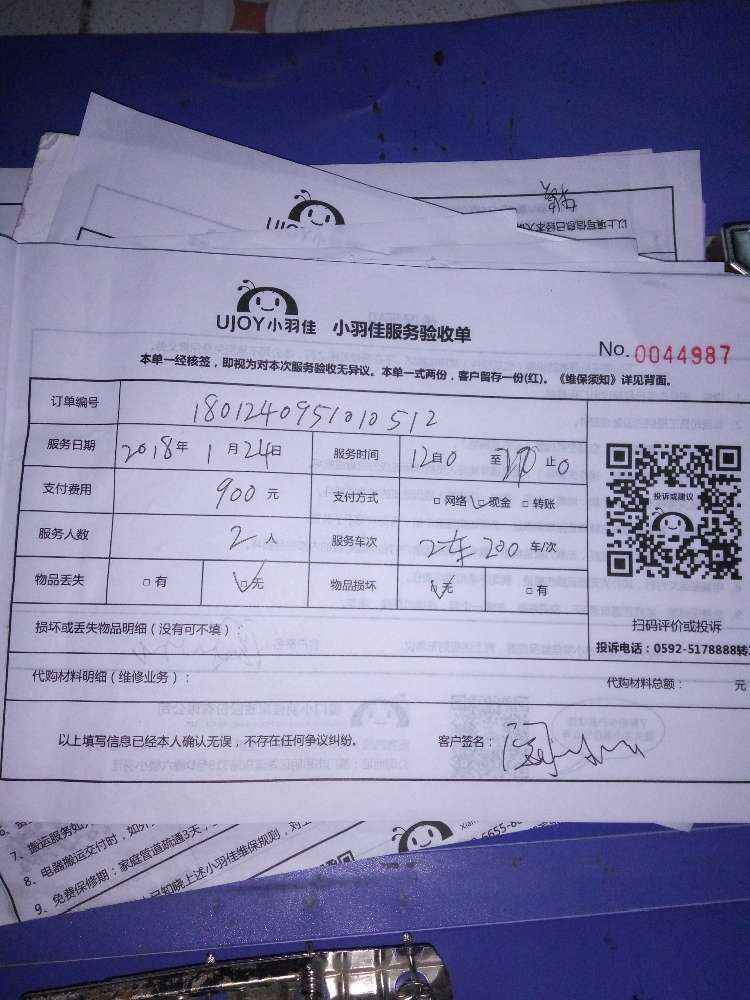 UJOY小羽佳
以上填写信息已经本人确
UJOY小羽佳 小羽佳服务验收单
No. 0044987
本单一经核签，即视为对本次服务验收无异议。本单一式两份，客户留存一份(红)。《维保须知》详见背面。
订单编号 1801240951010512
服务日期 2018年 1月24日 服务时间 12自0 至 止0
支付费用 900元 支付方式 □网络 ☑现金 □转账
服务人数 2人 服务车次 2车200车/次
物品丢失 □有 ☑无 物品损坏 ☑无 □有
投诉或建议
扫码评价或投诉
投诉电话：0592-5178888转
损坏或丢失物品明细（没有可不填）：
代购材料明细（维修业务）： 代购材料总额： 元
以上填写信息已经本人确认无误，不存在任何争议纠纷。 客户签名：
7、搬运服务如
8、电器搬运交付时，如外
9、免费保修期：家庭管道疏通3天，
已知晓上述小羽佳维保规则，对